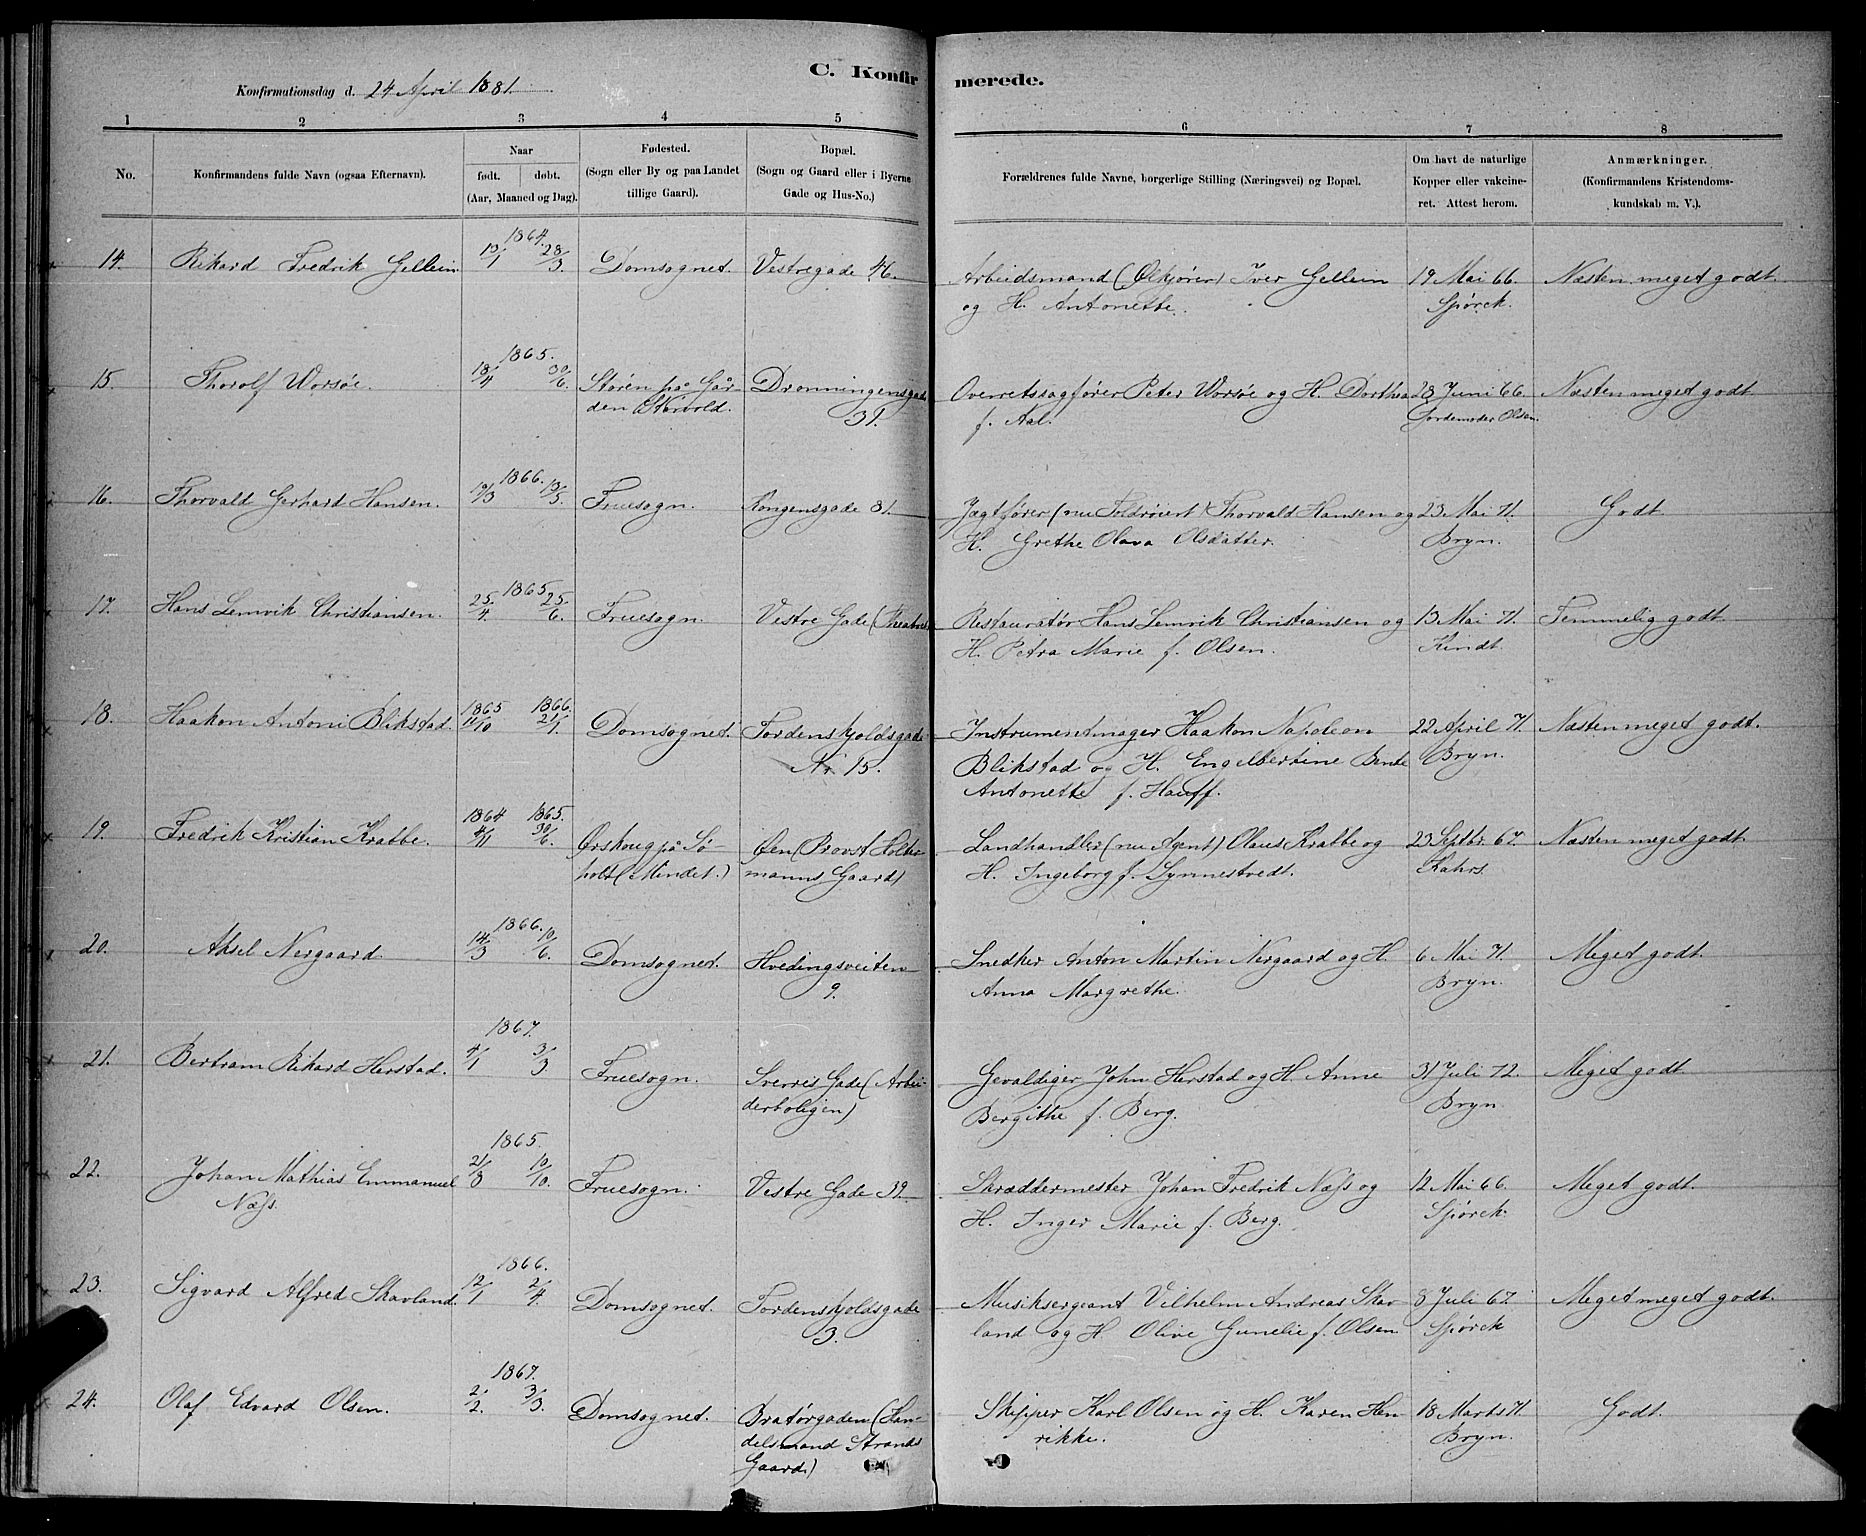 C. Konfirmerede.
Konfirmationsdag d. 24 April 1881.
1 2 3 4 5 6 7 8
No.
Konfirmandens fulde Navn (ogsaa Efternavn).
Naar
født. døbt.
(Aar, Maaned og Dag).
Fødested.
(Sogn eller By og paa Landet
tillige Gaard).
Bopæl.
(Sogn og Gaard eller i Byerne
Gade og Hus-No.)
Forældrenes fulde Navne, borgerlige Stilling (Næringsvei) og Bopæl.
Om havt de naturlige
Kopper eller vakcine-
ret. Attest herom.
Anmærkninger.
(Konfirmandens Kristendoms-
kundskab m. V.).
1864.
14. Rikard Fredrik Gellein 28/3 Domsognet. Vestregade 46. Arbeidsmand (Ølkjører) Iver Gellein 19 Mai 66. Næsten meget godt
og H. Antonette. Spørck.
1865.
15. Thorolf Worsøe. 18/4 30/6. Støren på Går- Dronningensgade Overretssagfører Peter Worsøe og H. Dorthea 28 Juni 66. Næsten meget godt
den 31. f. Aal. Jordemoder Olsen.
1866.
16. Thorvald Gerhard Hansen. 13/5. Fruesogn. Kongensgade 81. Jægtfører (nu ) Thorvald Hansen og 23 Mai 71. Godt
H. Grethe Olava Olsdatter. Bryn.
1865
17. Hans Lemvik Christiansen. 25/4. 25/6. Fruesogn. Vestre Gade (Theatret Restauratør Hans Lemvik Christiansen og 13 Mai 71. Temmelig godt
H. Petra Marie f. Olsen. Kindt
1865 1866.
18. Haakon Antoni Blikstad. 11/10 21/1. Domsognet. Tordenskjoldsgade Instrumentmager Haakon Napoleon 22 April 71. Næsten meget godt.
Nr 15. Blikstad og H. Engelbertine Bente Bryn.
Antonette f. Hauff.
1864 1865.
19. Fredrik Kristian Krabbe. 4/11 30/6. Ørskoug på Sø- Øen (Provst Holter- Landhandler (nu Agent) Olaus Krabbe og 23 Septbr. 67. Næsten meget godt.
holt (Mindet.) manns Gaard) H. Ingeborg f. Lynnestvedt. Kahrs.
1866.
20. Aksel Nergaard 14/3 10/6. Domsognet. Hvedingsveiten Snedker Anton Martin Nergaard og H. 6 Mai 71. Meget godt.
9. Anna Margrethe. Bryn.
1867.
21. Bertram Rikard Herstad. 4/1 3/3 Fruesogn. Sverris Gade (Arbei- Gevaldiger John Herstad og H. Anne 31 Juli 72. Meget godt
derboligen) Bergithe f. Berg. Bryn
1865.
22. Johan Mathias Emmanuel 21/8 10/10. Fruesogn. Vestre Gade 39. Skræddermester Johan Fredrik Næss og 12 Mai 66. Meget godt.
Næss. H. Inger Marie f. Berg. Spørck.
1866.
23. Sigvard Alfred Skavland. 12/1 2/4. Domsognet. Tordenskjoldsgade Musiksergeant Vilhelm Andreas Skav- 8 Juli 67. Meget meget godt.
3. land og H. Olive Gunelie f. Olsen. Spørck
1867.
24. Olaf Edvard Olsen. 2/2. 3/3. Domsognet. Bratørgaden (Han- Skipper Karl Olsen og H. Karen Hen- 18 Marts 71. Godt.
delsmand Strands rikke. Bryn.
Gaard.)